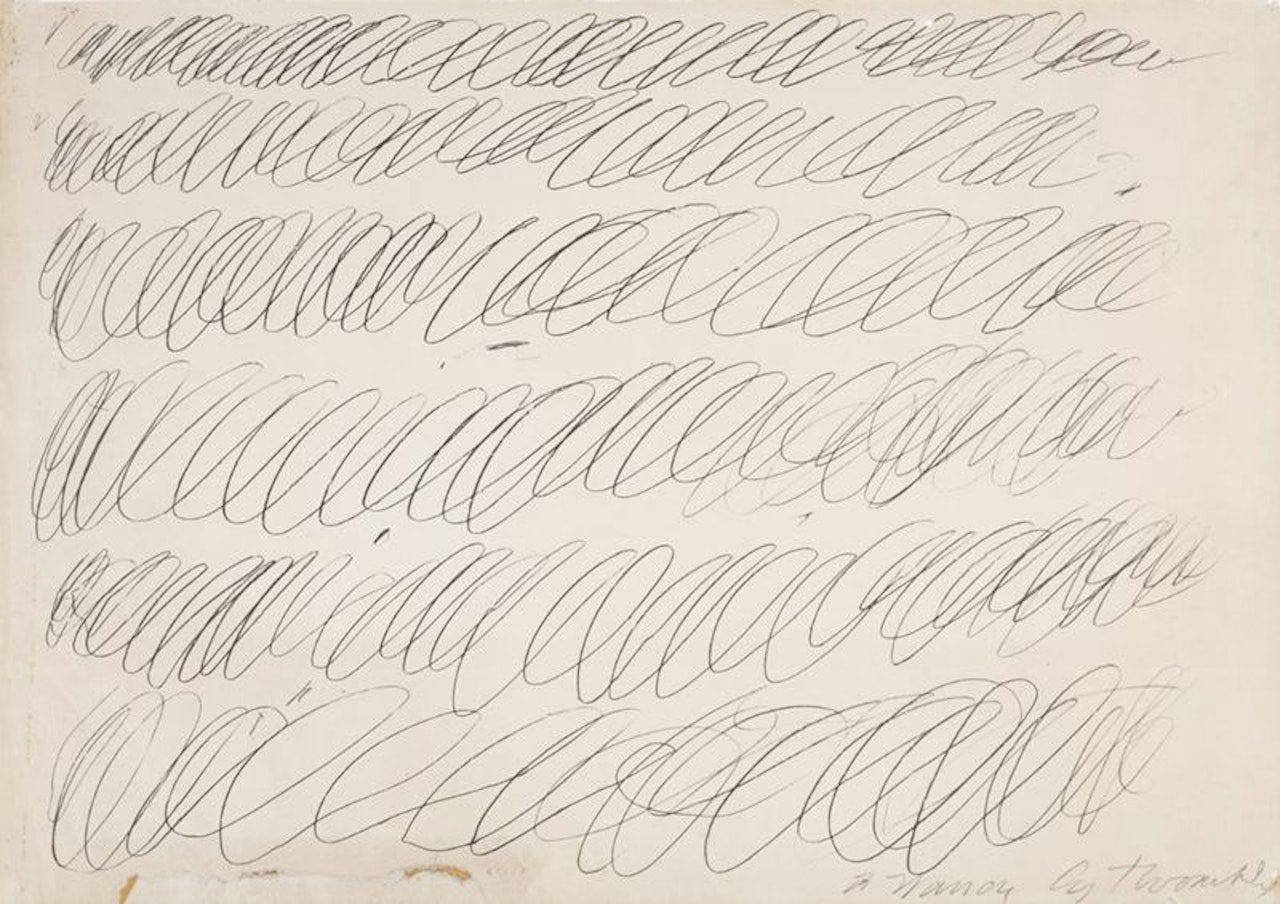 a Nancy Cy Twombly